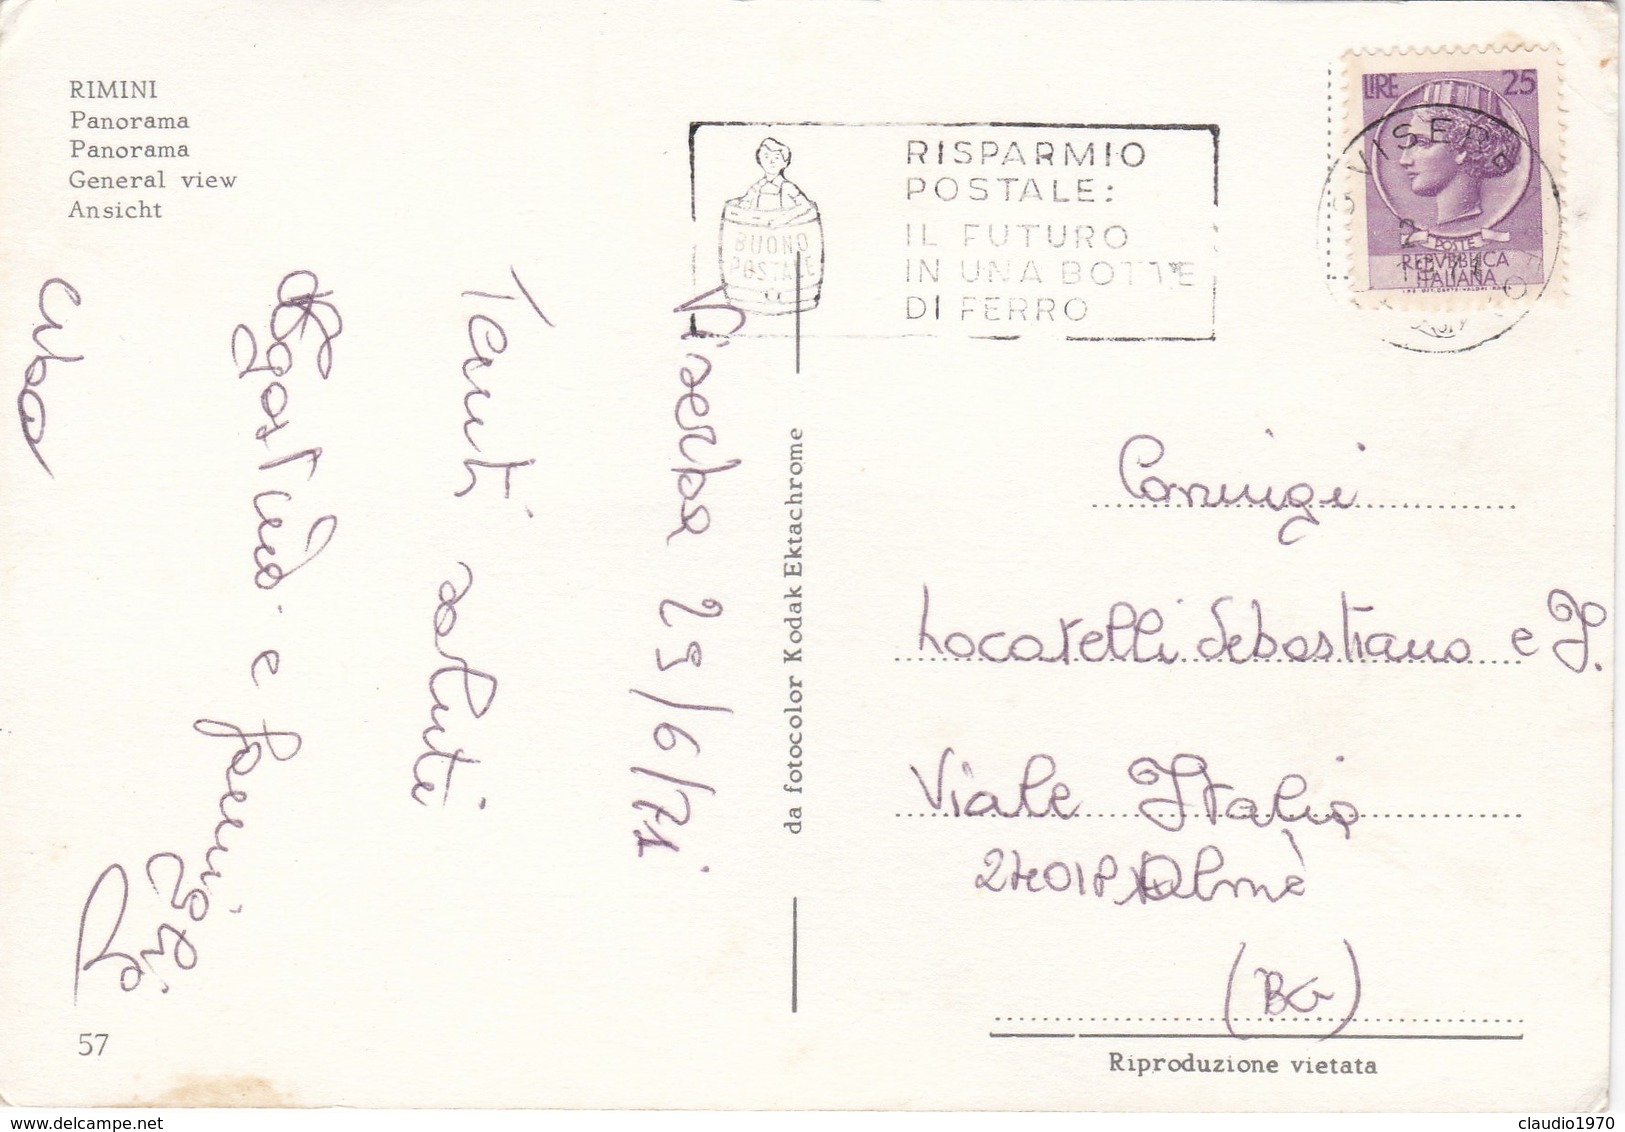 RIMINI
Panorama
Panorama
General view
Ansicht
RISPARMIO
POSTALE:
IL FUTURO
IN UNA BOTTE
DI FERRO
BUONO
POSTALE
LIRE 25
POSTE
REPVBBLICA
ITALIANA
VISERB
Viserba 25/6/71
Tanti saluti
Agostino e famiglia
Alba
da fotocolor Kodak Ektachrome
Coniugi
Locatelli Sebastiano e F.
Viale Italia
24018 Almè
(BG)
57
Riproduzione vietata
delcampe.net
claudio1970